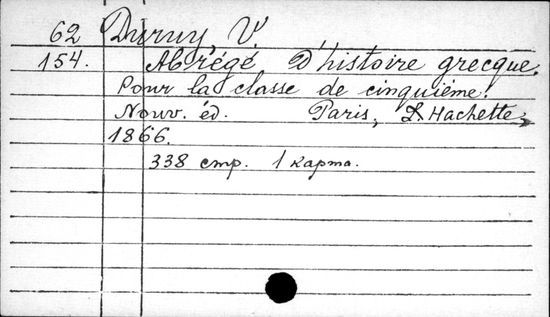 62 Duruy V.
154. Abrégé D'histoire grecque.
Pour la classe de cinquième.
Nouv. éd. Paris, L. Hachette,
1866.
338 стр. 1 карта.